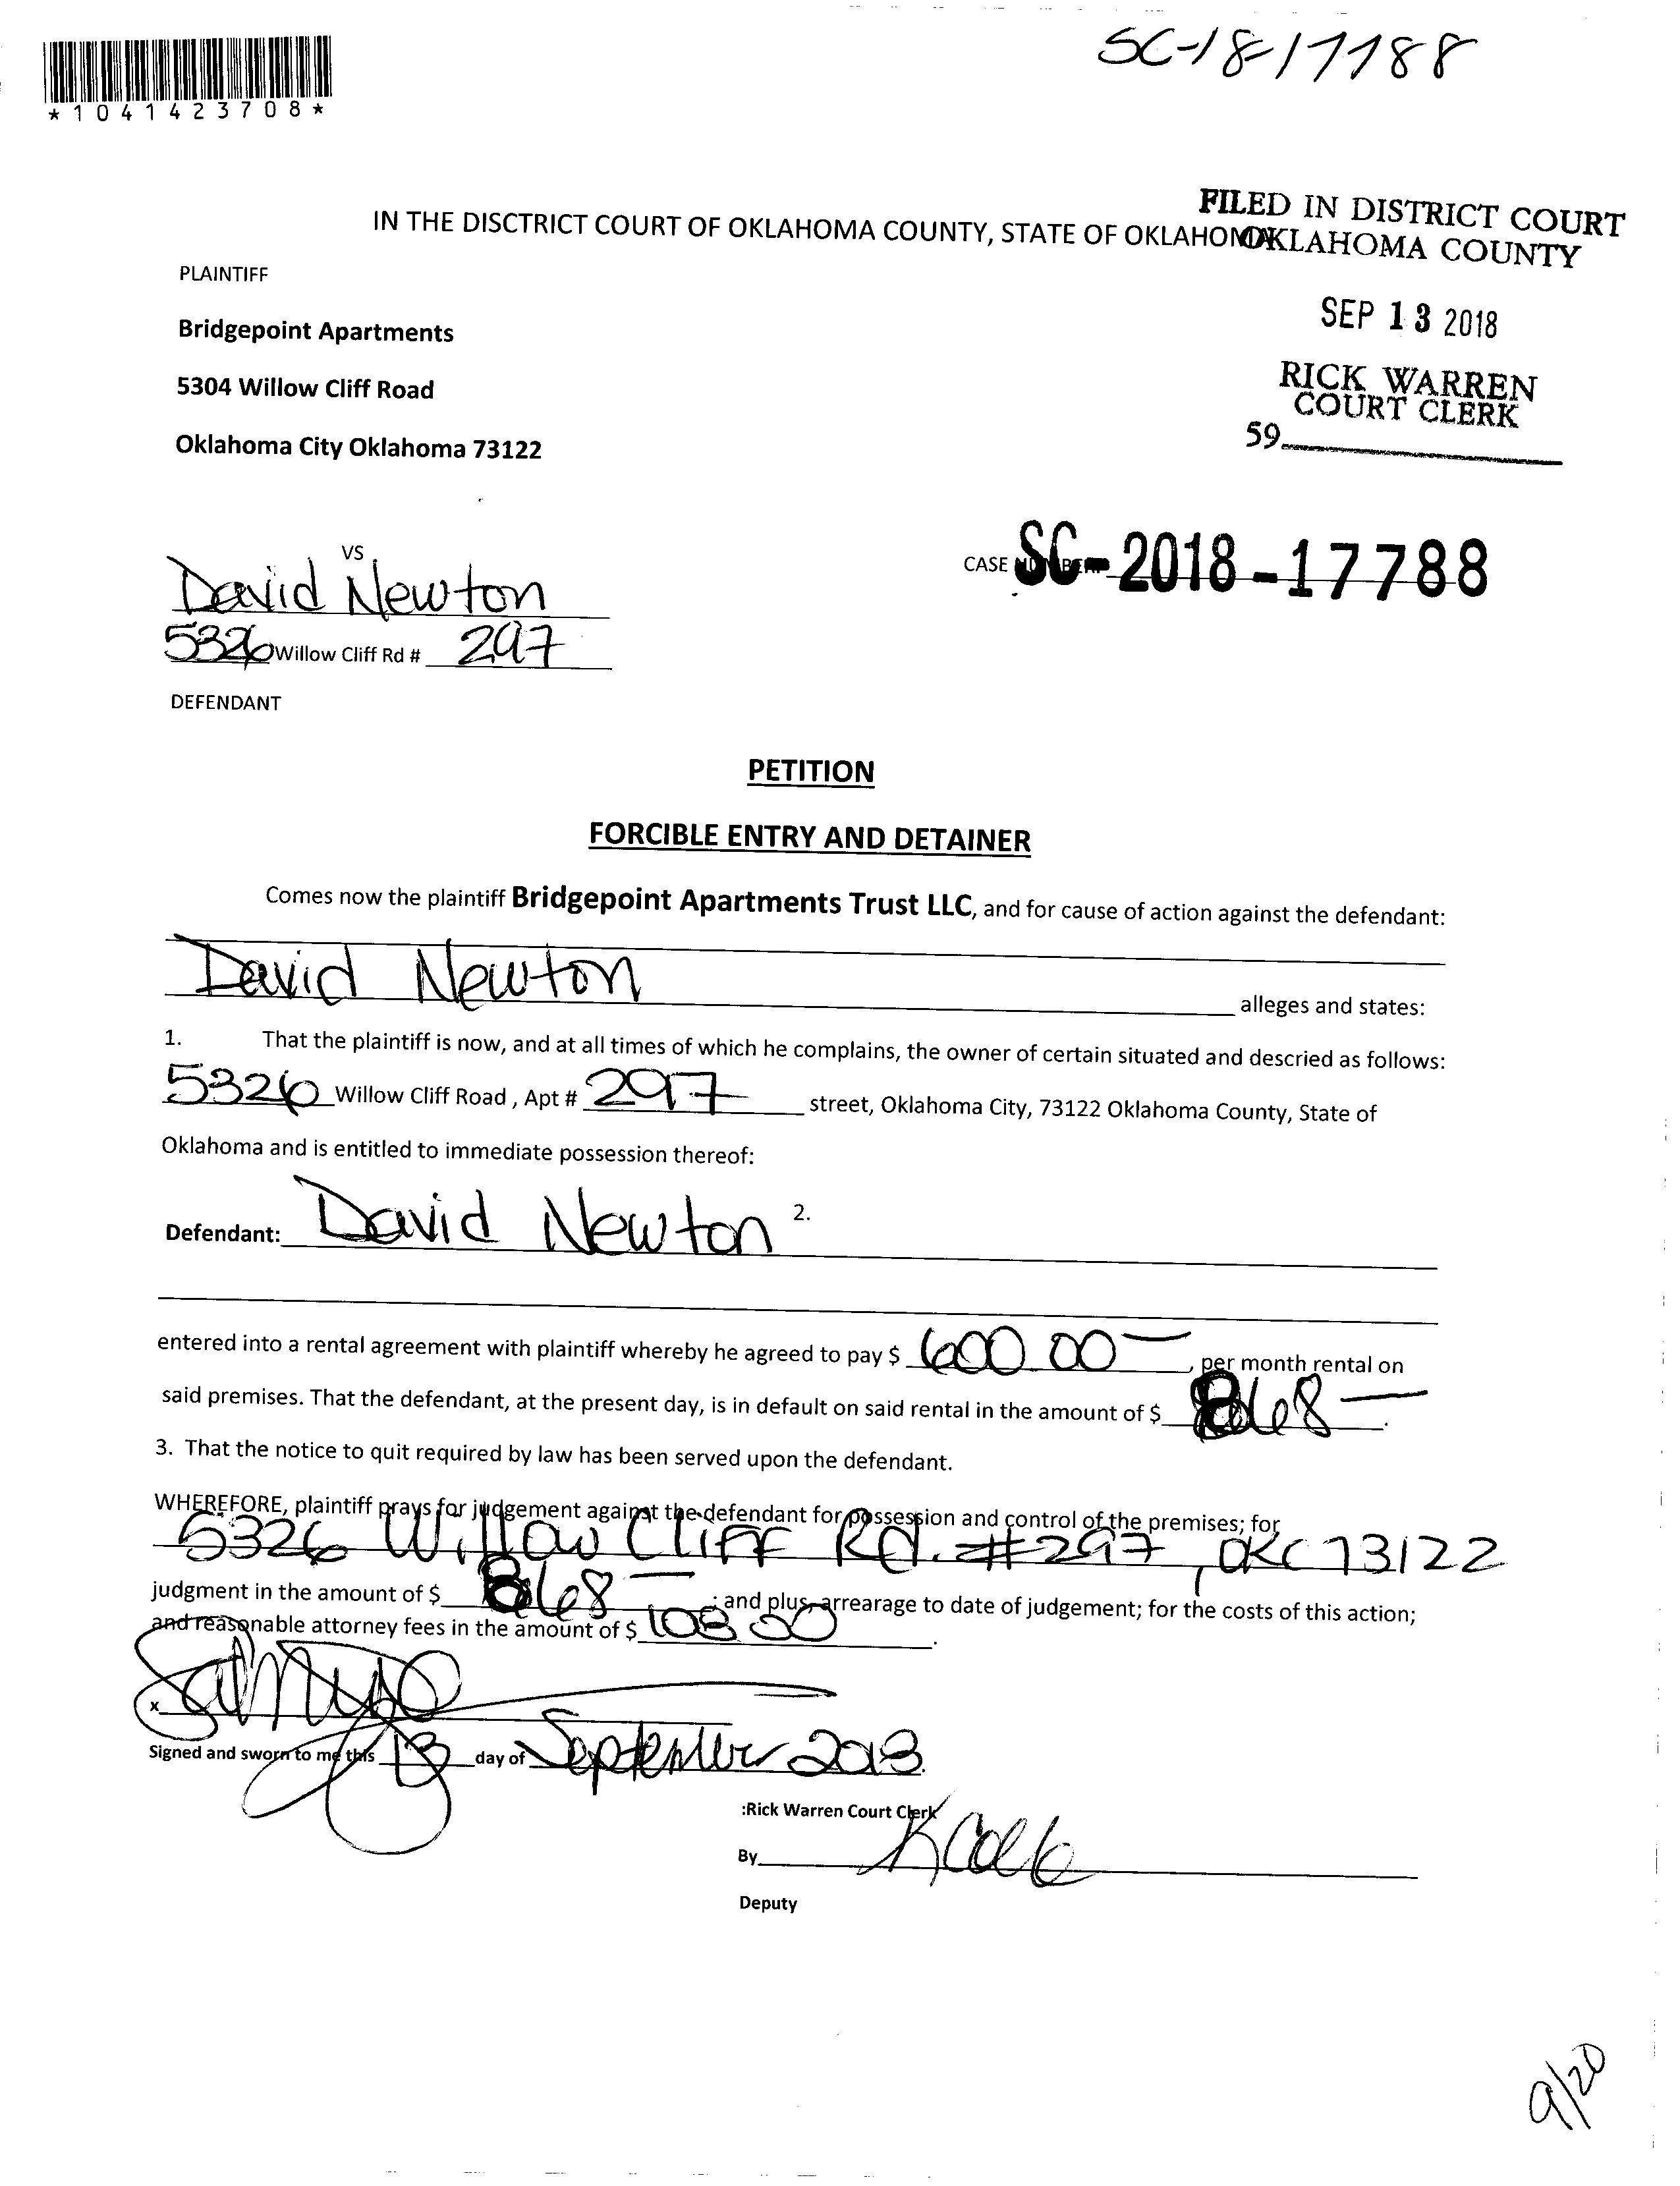 SC-18-17788
*1041423708*
FILED IN DISTRICT COURT
OKLAHOMA COUNTY
IN THE DISCTRICT COURT OF OKLAHOMA COUNTY, STATE OF OKLAHOMA
PLAINTIFF
SEP 13 2018
Bridgepoint Apartments
RICK WARREN
COURT CLERK
5304 Willow Cliff Road
59
Oklahoma City Oklahoma 73122
VS
CASE NUMBER SC-2018-17788
David Newton
5326 Willow Cliff Rd # 297
DEFENDANT
PETITION
FORCIBLE ENTRY AND DETAINER
Comes now the plaintiff Bridgepoint Apartments Trust LLC, and for cause of action against the defendant:
David Newton alleges and states:
1. That the plaintiff is now, and at all times of which he complains, the owner of certain situated and descried as follows:
5326 Willow Cliff Road , Apt # 297 street, Oklahoma City, 73122 Oklahoma County, State of
Oklahoma and is entitled to immediate possession thereof:
Defendant: David Newton 2.
entered into a rental agreement with plaintiff whereby he agreed to pay $ 600.00 , per month rental on
said premises. That the defendant, at the present day, is in default on said rental in the amount of $ 868 .
3. That the notice to quit required by law has been served upon the defendant.
WHEREFORE, plaintiff prays for judgement against the defendant for possession and control of the premises; for
5326 Willow Cliff Rd. #297, OKC 73122
judgment in the amount of $ 868 ; and plus, arrearage to date of judgement; for the costs of this action;
and reasonable attorney fees in the amount of $ .
x
Signed and sworn to me this 13 day of September 2018.
:Rick Warren Court Clerk
By
Deputy
9/20